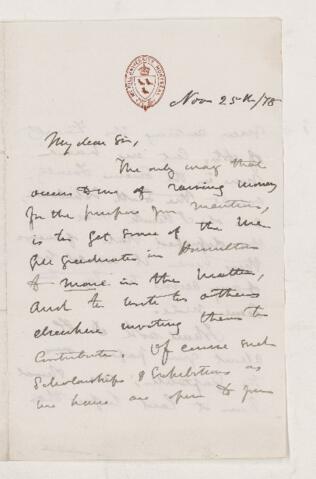 McGILL UNIVERSITY MONTREAL
Nov 25th/78
My dear Sir,
The only way that
occurs to me of raising money
for the purpose you mention,
is to get some of the Mc
Gill graduates in Hamilton
to move in the matter,
and to write to others
elsewhere inviting them to
contribute. Of course such
Scholarships & Exhibitions as
we have are open to your